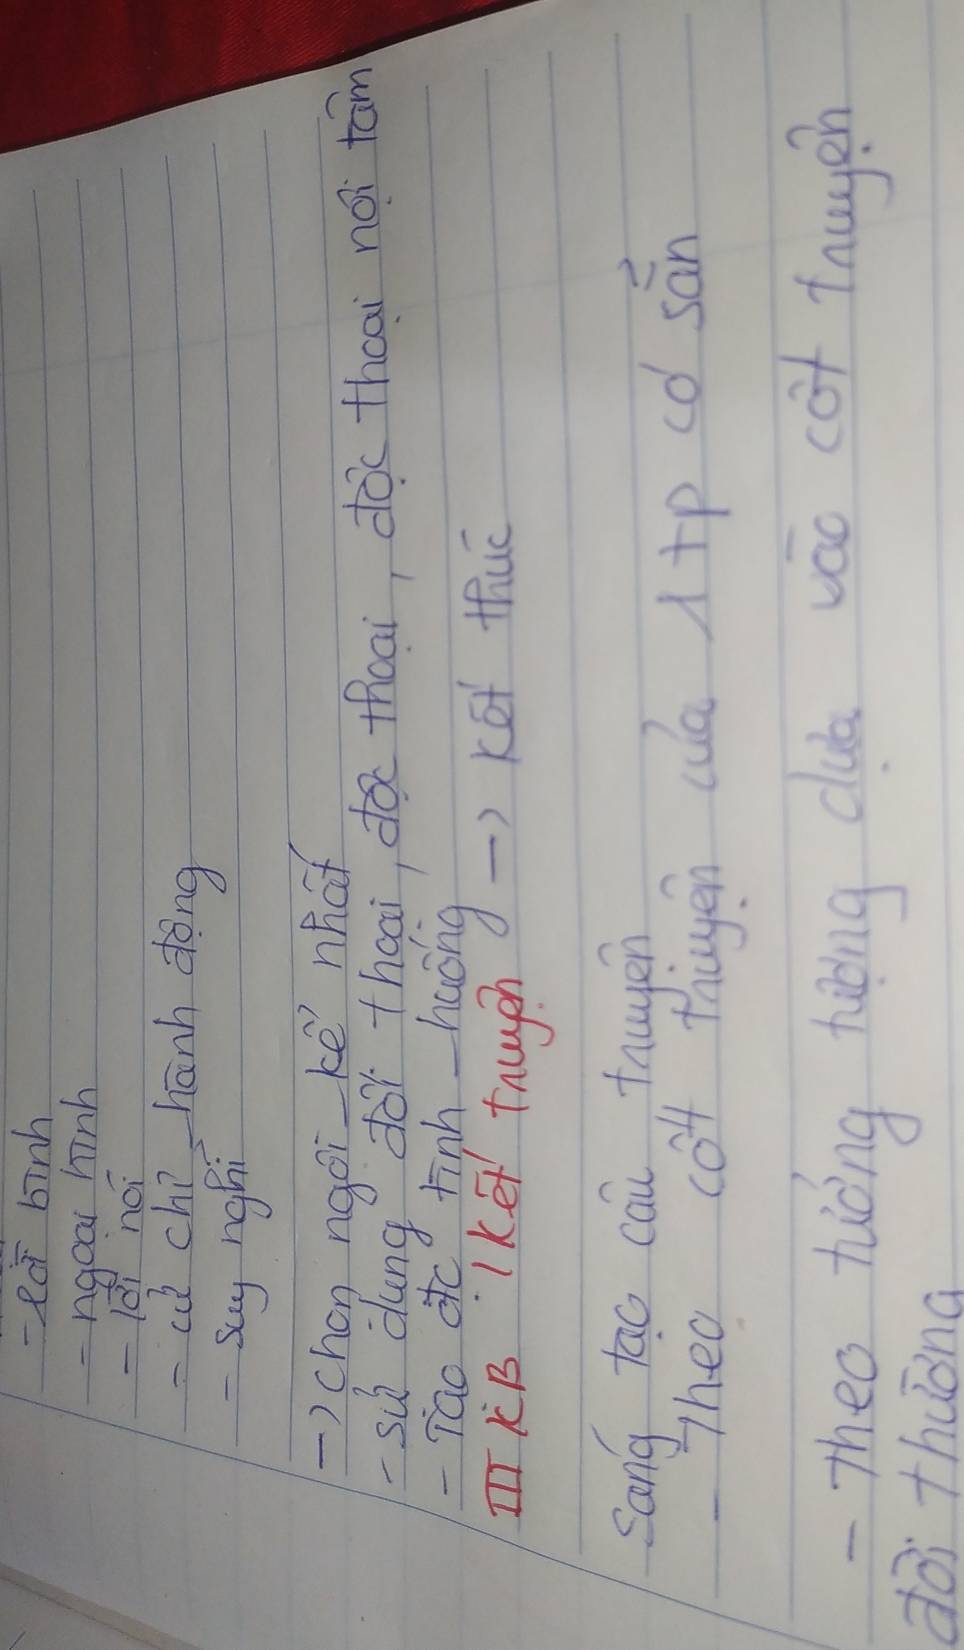 - lời bình
- ngoại hình
- lời nói
- cử chỉ - hành động
- suy nghĩ
-> chọn ngôi kể nhất
- sử dụng đối thoại, độc thoại, độc thoại nội tâm
- Tạo đc tình huống
III KB: (kết truyện -> kết thúc
Sáng tạo câu truyện
- Theo cốt truyện của 1 tp có sẵn
- Theo tưởng tượng dựa vào cốt truyện
đời thường